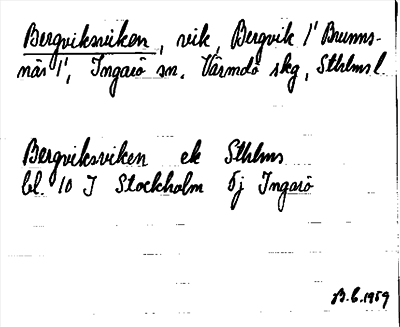 Bergviksviken, vik, Bergvik 1' Brunns-
när 1', Ingarö sn, Värmdö skg, Sthlms l.
Bergviksviken ek Sthlms
bl. 10 J Stockholm 5j Ingarö
B.C. 1959